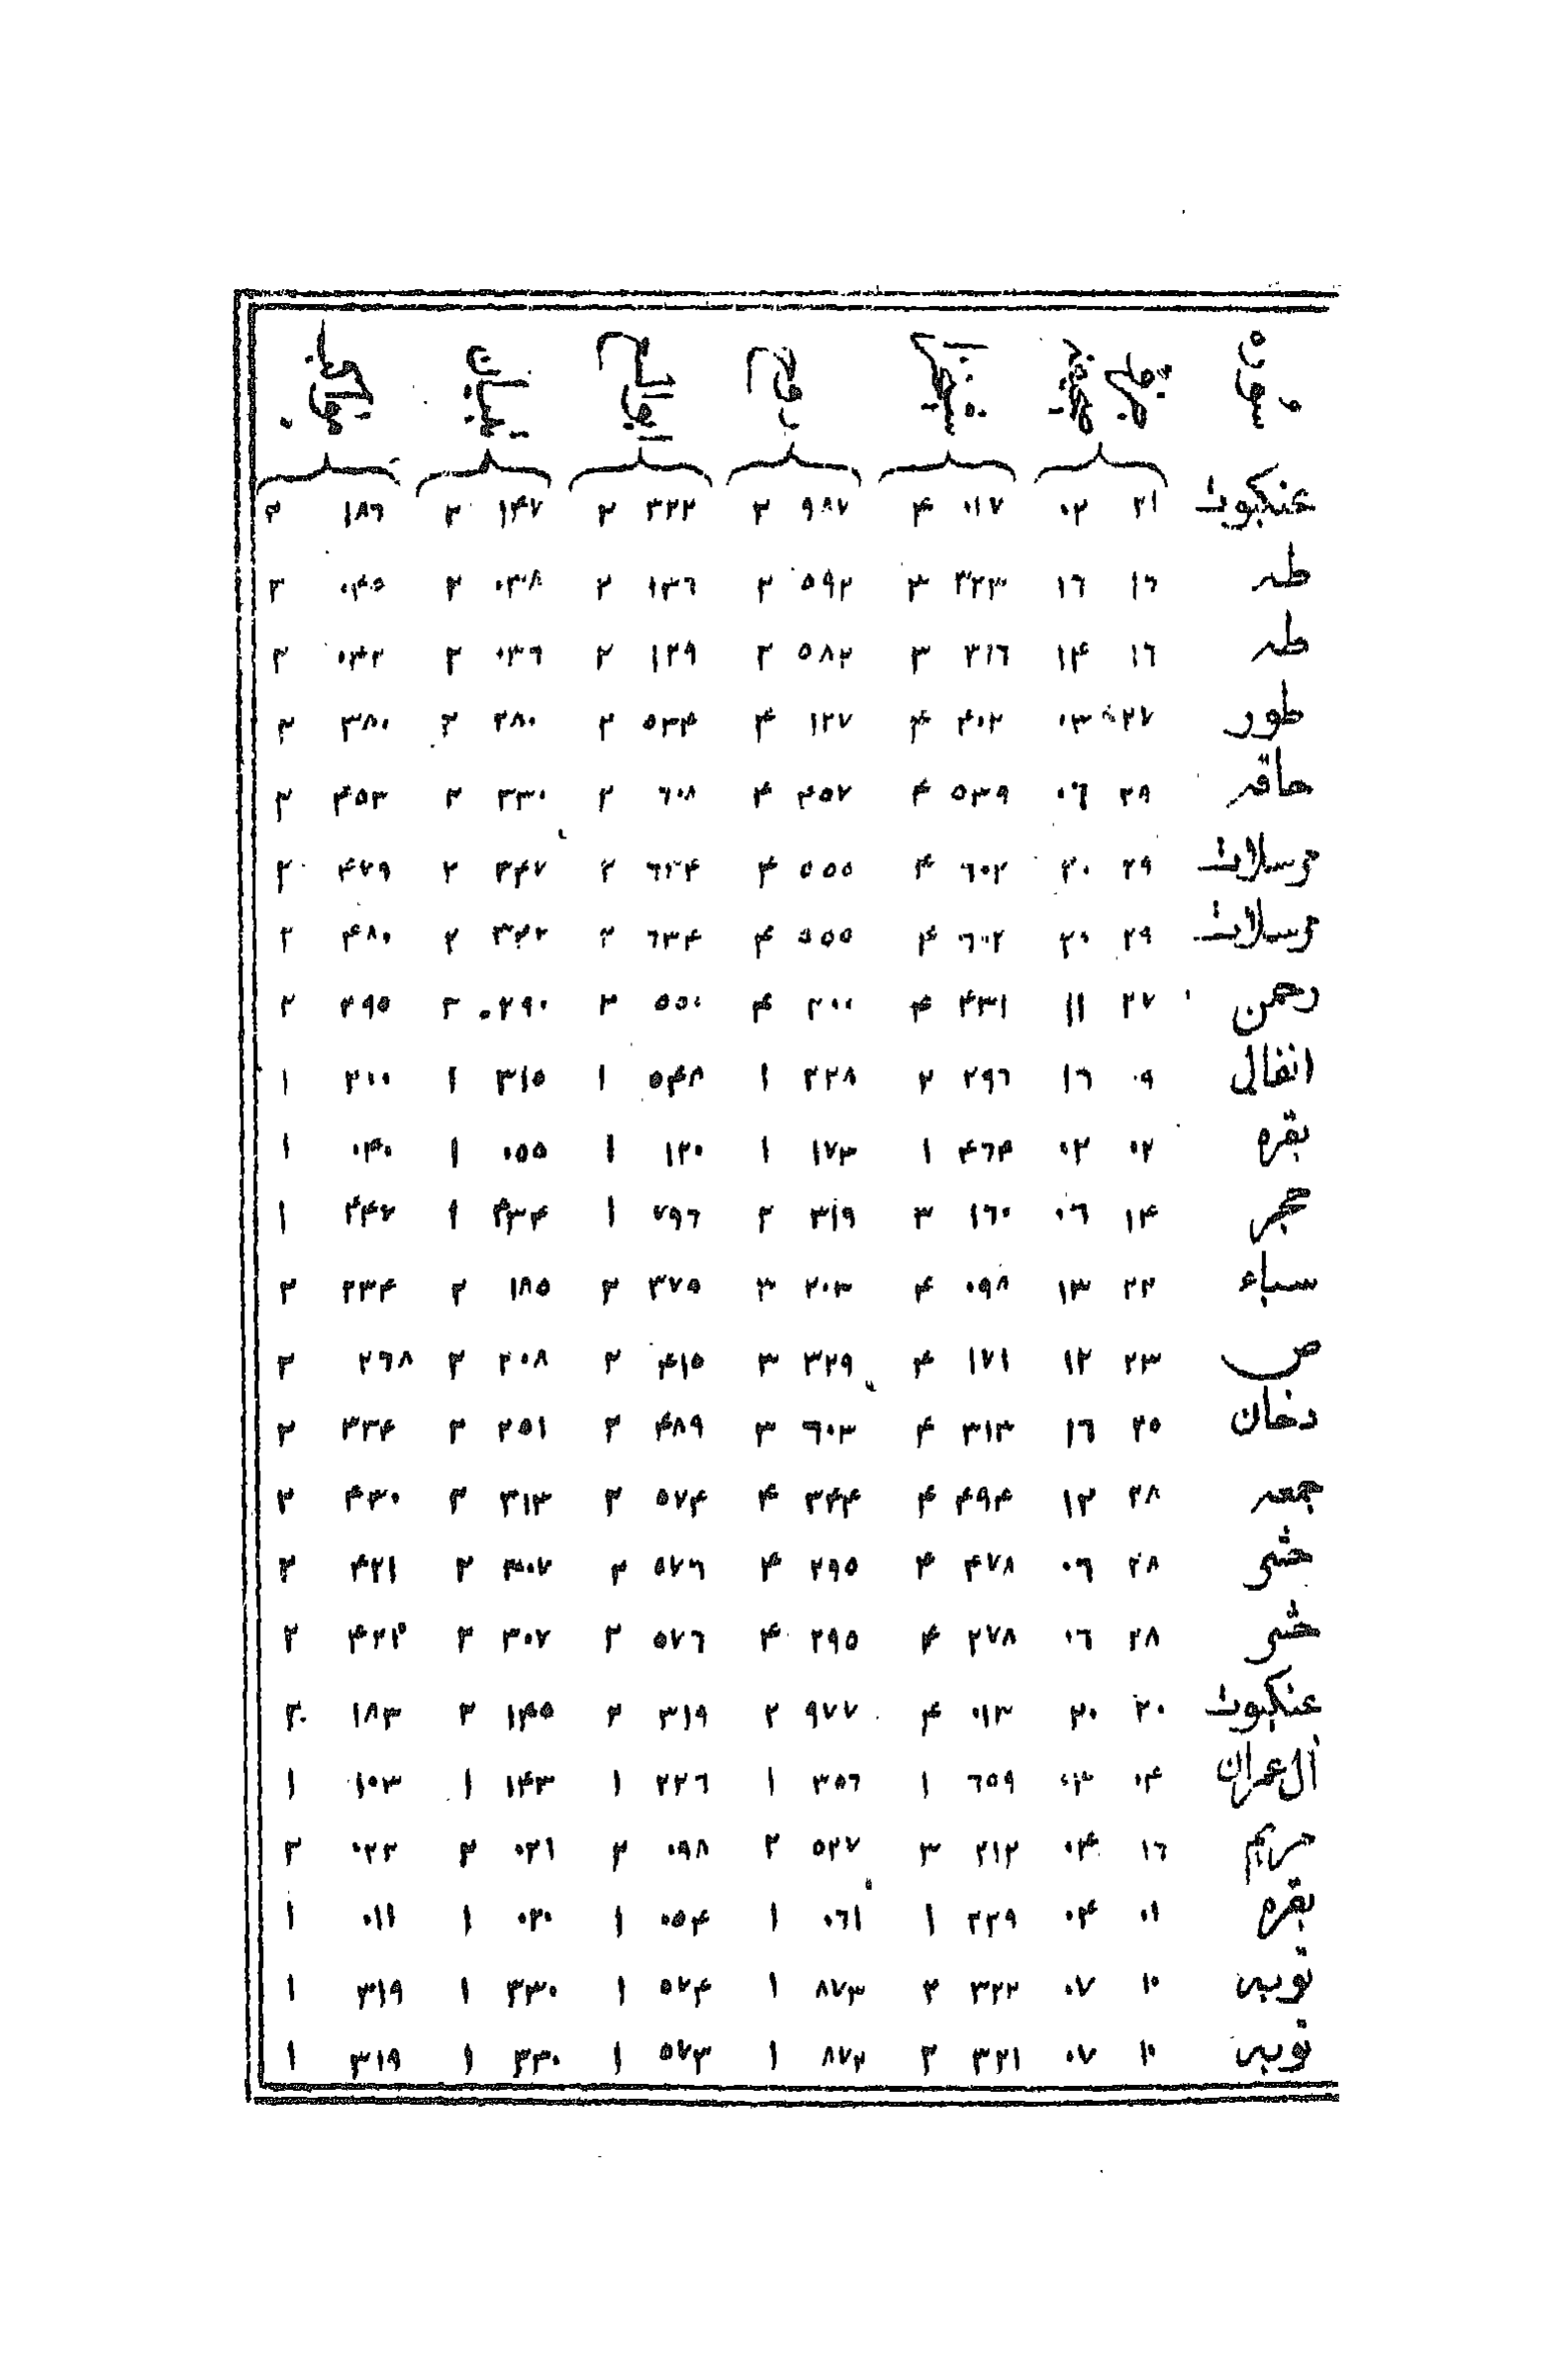 عنکبوت ۲۱ ۰۲ ۰۱۷ ۴ ۹۸۷ ۲ ۳۲۲ ۲ ۱۴۷ ۲ ۱۸٦ ۲
طه ۱٦ ۱٦ ۳۲۳ ۳ ۵۹۲ ۲ ۱۳٦ ۲ ۰۳۸ ۲ ۰۴۵ ۲
طه ۱٦ ۱۴ ۳۱٦ ۳ ۵۸۲ ۲ ۱۲۹ ۲ ۰۳٦ ۲ ۰۴۲ ۲
طور ۲۷ ۰۳ ۴۰۲ ۴ ۱۲۷ ۴ ۵۳۴ ۲ ۲۸۰ ۲ ۳۸۰ ۲
حاقه ۲۹ ۰٦ ۵۳۹ ۴ ۴۵۷ ۴ ٦۰۸ ۲ ۳۳۰ ۲ ۴۵۳ ۲
مرسلات ۲۹ ۲۰ ٦۰۲ ۴ ۵۵۵ ۴ ٦۳۴ ۲ ۳۴۷ ۲ ۴۷۹ ۲
مرسلات ۲۹ ۲۰ ٦۰۲ ۴ ۵۵۵ ۴ ٦۳۴ ۲ ۳۴۷ ۲ ۴۸۰ ۲
رحمن ۲۷ ۱۱ ۴۳۱ ۴ ۲۰۰ ۴ ۵۵۰ ۲ ۲۹۰ ۲ ۳۹۵ ۲
انفال ۰۹ ۱٦ ۲۹٦ ۲ ۲۲۸ ۱ ۵۴۸ ۱ ۳۱۵ ۱ ۳۰۰ ۱
بقره ۰۲ ۰۲ ۴٦۴ ۱ ۱۷۳ ۱ ۱۲۰ ۱ ۰۵۵ ۱ ۰۴۰ ۱
حجر ۱۴ ۰٦ ۱٦۰ ۳ ۳۱۹ ۲ ۷۹٦ ۱ ۴۳۴ ۱ ۴۴۷ ۱
سباء ۲۲ ۱۳ ۰۹۸ ۴ ۲۰۳ ۳ ۳۷۵ ۲ ۱۸۵ ۲ ۲۳۴ ۲
ص ۲۳ ۱۲ ۱۷۱ ۴ ۳۲۹ ۳ ۴۱۵ ۲ ۲۰۸ ۲ ۲٦۸ ۲
دخان ۲۵ ۱٦ ۳۱۳ ۴ ٦۰۳ ۳ ۴۸۹ ۲ ۲۵۱ ۲ ۳۳۴ ۲
جمعه ۲۸ ۱۲ ۴۹۴ ۴ ۳۴۴ ۴ ۵۷۴ ۲ ۳۱۳ ۲ ۴۳۰ ۲
حشر ۲۸ ۰٦ ۴۷۸ ۴ ۲۹۵ ۴ ۵۷٦ ۲ ۳۰۷ ۲ ۴۲۱ ۲
حشر ۲۸ ۰٦ ۴۷۸ ۴ ۲۹۵ ۴ ۵۷٦ ۲ ۳۰۷ ۲ ۲
عنکبوت ۲۰ ۲۰ ۰۱۳ ۴ ۹۷۷ ۲ ۳۱۹ ۲ ۱۴۵ ۲ ۱۸۳ ۲
آل عمران ۰۴ ۰۳ ٦۵۹ ۱ ۳۵٦ ۱ ۲۲٦ ۱ ۱۴۳ ۱ ۱۰۳ ۱
مریم ۱٦ ۰۴ ۲۱۲ ۳ ۵۲۷ ۲ ۰۹۸ ۲ ۰۲۱ ۲ ۰۲۲ ۲
بقره ۰۱ ۰۴ ۲۲۹ ۱ ۰٦۱ ۱ ۰۵۴ ۱ ۰۲۰ ۱ ۰۱۱ ۱
توبه ۱۰ ۰۷ ۳۲۲ ۲ ۸۷۳ ۱ ۵۷۴ ۱ ۳۳۰ ۱ ۳۱۹ ۱
توبه ۱۰ ۰۷ ۳۲۱ ۲ ۸۷۲ ۱ ۵۷۳ ۱ ۳۳۰ ۱ ۳۱۹ ۱